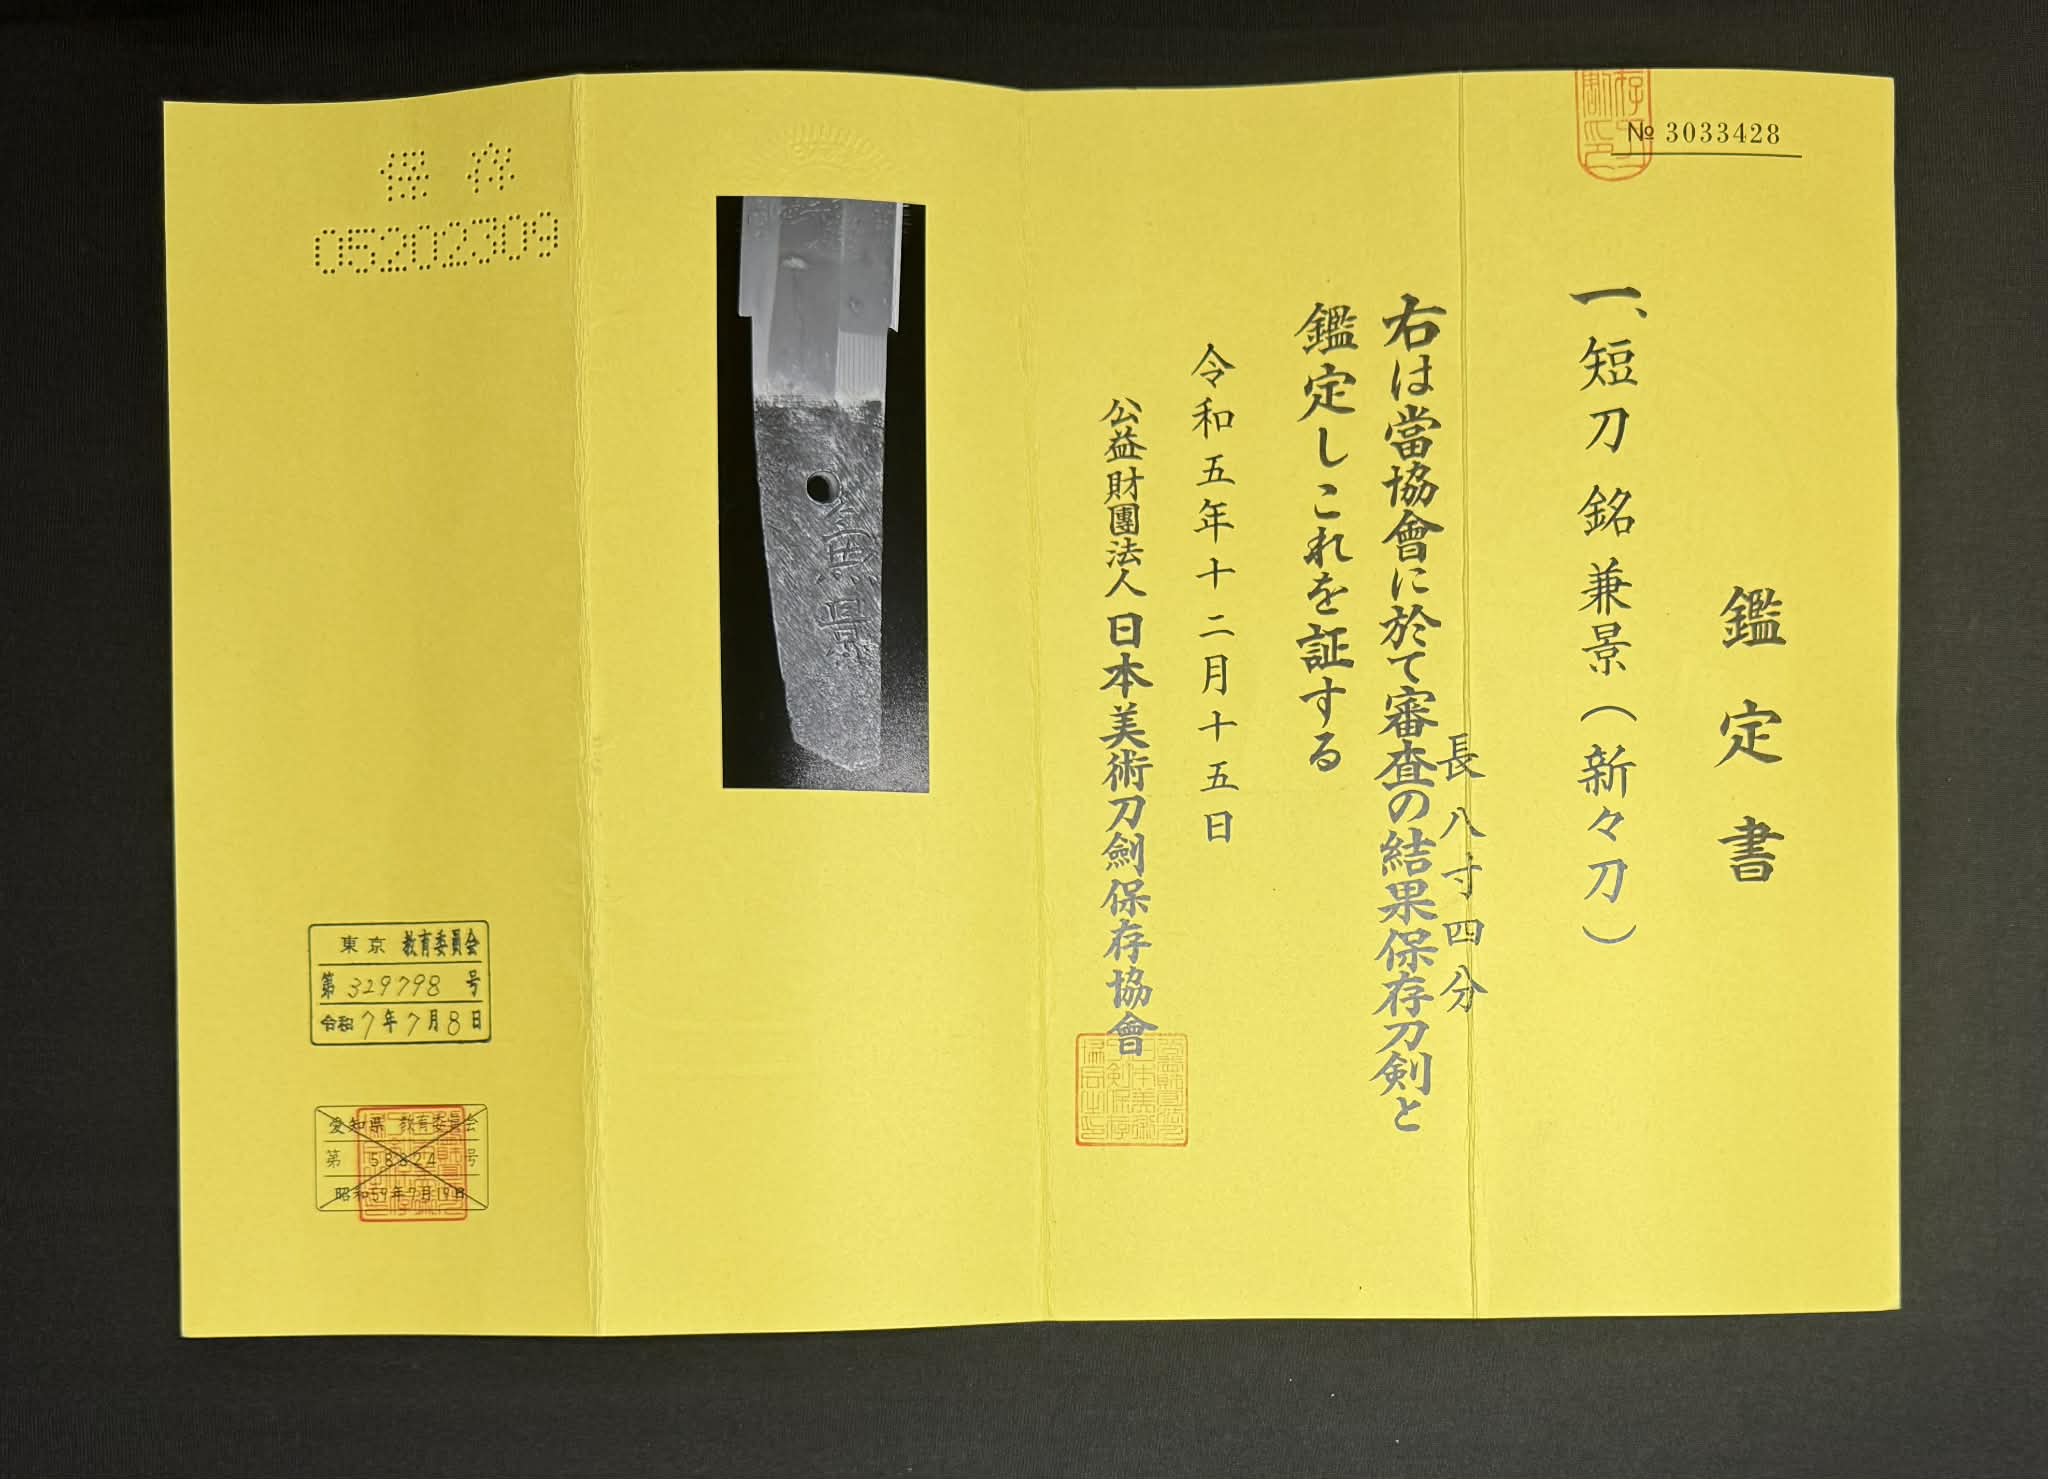 № 3033428
鑑定書
一、短刀 銘 兼景(新々刀)
長八寸四分
右は當協會に於て審査の結果保存刀剣と
鑑定しこれを証する
令和五年十二月十五日
公益財團法人 日本美術刀劍保存協會
兼景
保存
05202309
東京 教育委員会
第 329798 号
令和 7年7月8日
愛知県 教育委員会
第 58824 号
昭和59年7月19日